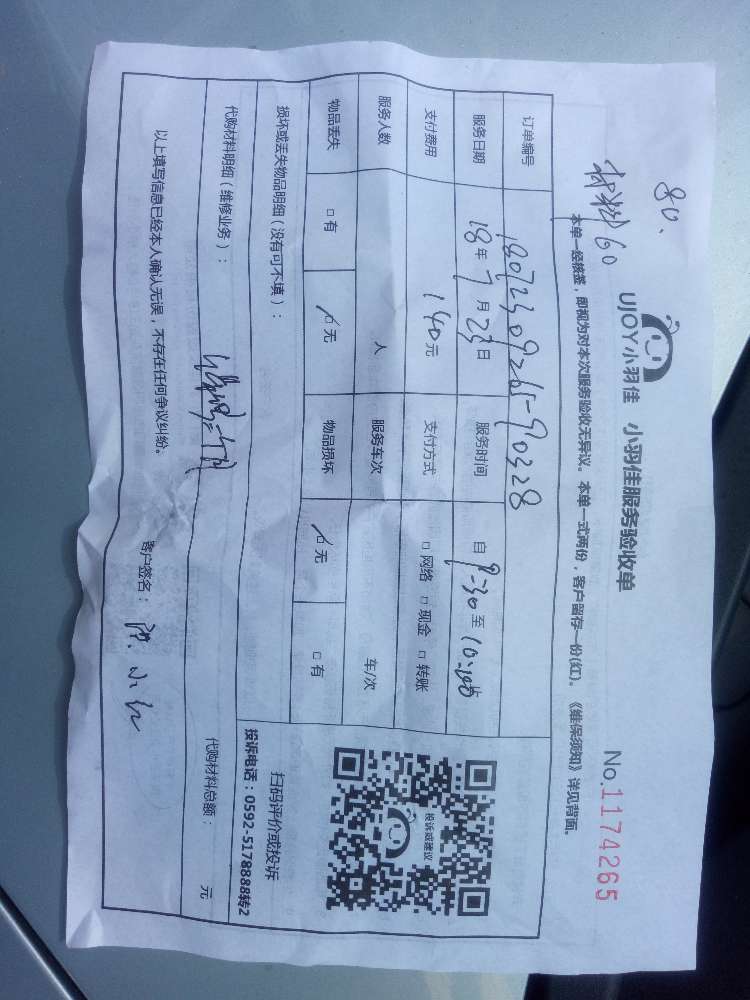 80.
材料60
UJOY小羽佳 小羽佳服务验收单
No.1174265
本单一经核签，即视为对本次服务验收无异议。本单一式两份，客户留存一份(红)。《维保须知》详见背面。
订单编号 18072309265-90328
服务日期 18年7月23日 服务时间 自9-30至10:
支付费用 140元 支付方式 □网络 □现金 □转账
服务人数 人 服务车次 车/次
物品丢失 □有 □无 物品损坏 □无 □有
损坏或丢失物品明细（没有可不填）：
投诉或建议
扫码评价或投诉
投诉电话：0592-5178888转2
代购材料明细（维修业务）： 代购材料总额： 元
以上填写信息已经本人确认无误，不存在任何争议纠纷。 客户签名：